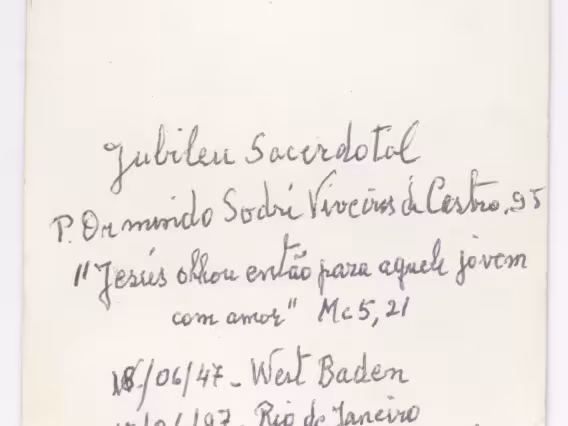 Jubileu Sacerdotal
P. Ormindo Sodré Viveiros de Castro, SJ
"Jesús olhou então para aquele jovem
com amor" Mc 5, 21
18/06/47 - West Baden
/97 - Rio de Janeiro